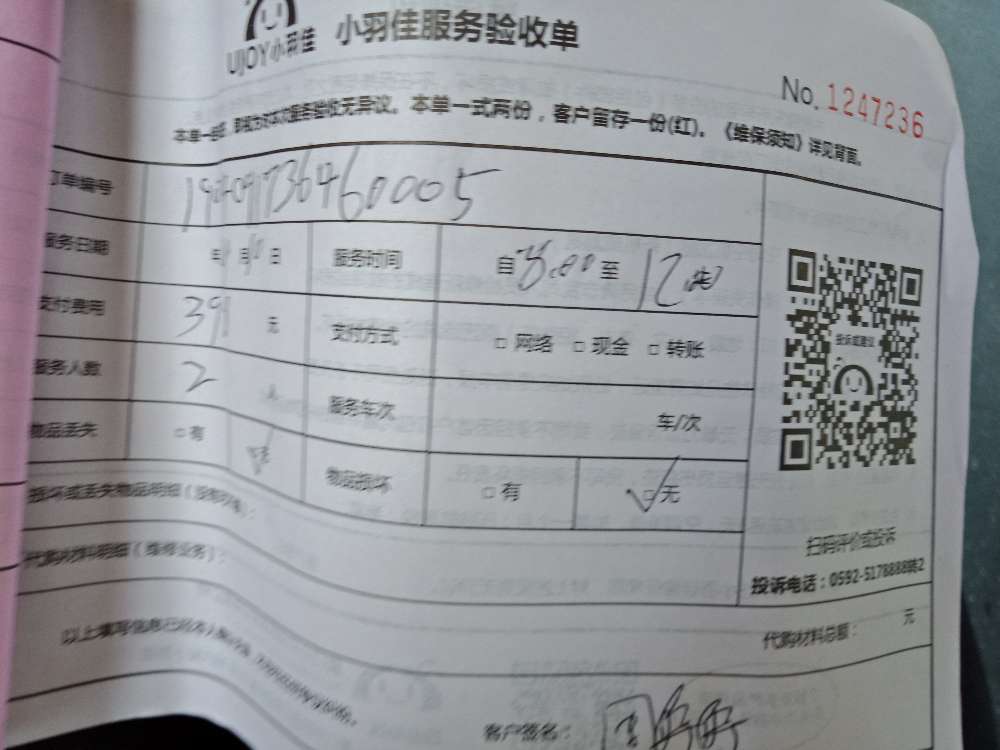 UJOY小羽佳 小羽佳服务验收单
No. 1247236
本单一经签，即视为对本次服务验收无异议。本单一式两份，客户留存一份(红)。《维保须知》详见背面。
订单编号
服务日期 年 月 日 服务时间 自 8:00 至 12:00
支付费用 391 元 支付方式 □ 网络 □ 现金 □ 转账
服务人数 2 人 服务车次 车/次
物品丢失 □ 有 无 物品损坏 □ 有 □ 无
投诉或建议
扫码评价或投诉
投诉电话：0592-5178888转2
损坏或丢失物品明细（没有可填）：
代购材料明细（维修业务）：
代购材料总额： 元
以上填写信息已经本人
客户签名：